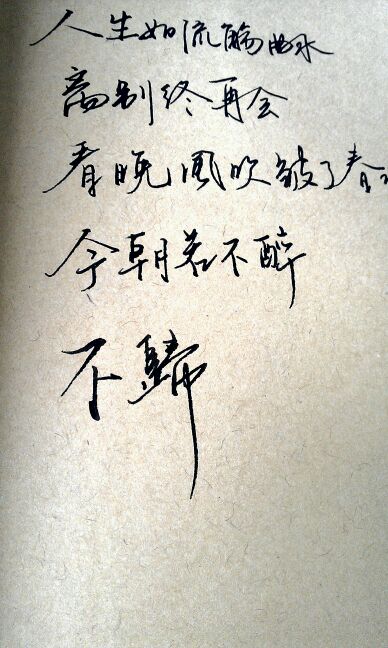 人生如流觞曲水
离别终再会
春晚風吹皱了春
今朝若不醉
不歸